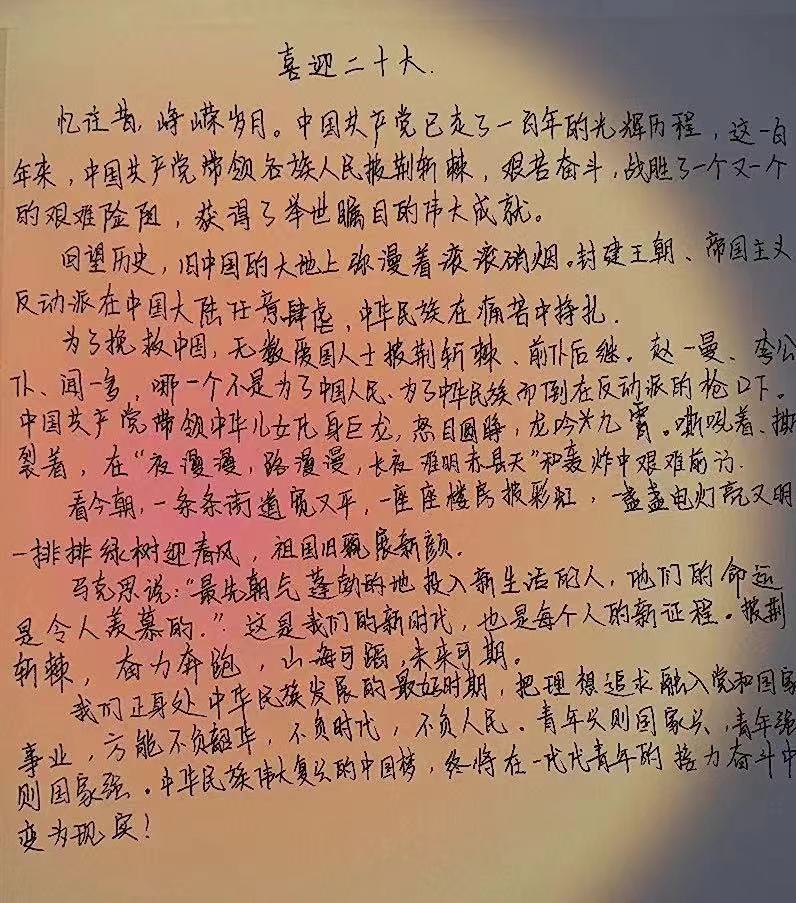 喜迎二十大.
忆往昔,峥嵘岁月。中国共产党已走了一百年的光辉历程,这一百
年来,中国共产党带领各族人民披荆斩棘,艰苦奋斗,战胜了一个又一个
的艰难险阻,获得了举世瞩目的伟大成就。
回望历史,旧中国的大地上弥漫着滚滚硝烟。封建王朝、帝国主义
反动派在中国大陆任意肆虐,中华民族在痛苦中挣扎.
为了挽救中国,无数爱国人士披荆斩棘、前仆后继。赵一曼、李公
仆、闻一多,哪一个不是为了中国人民、为了中华民族而倒在反动派的枪口下。
中国共产党带领中华儿女化身巨龙,怒目圆睁,龙吟九霄。嘶吼着、撕
裂着,在“夜漫漫,路漫漫,长夜难明赤县天”和轰炸中艰难前行.
看今朝,一条条街道宽又平,一座座楼房披彩虹,一盏盏电灯亮又明
一排排绿树迎春风,祖国旧貌展新颜.
马克思说:“最先朝气蓬勃的地投入新生活的人,他们的命运
是令人羡慕的.”这是我们的新时代,也是每个人的新征程。披荆
斩棘,奋力奔跑,山海可蹈,未来可期。
我们正身处中华民族发展的最好时期,把理想追求融入党和国家
事业,方能不负韶华,不负时代,不负人民。青年兴则国家兴,青年强
则国家强。中华民族伟大复兴的中国梦,终将在一代代青年的接力奋斗中
变为现实!